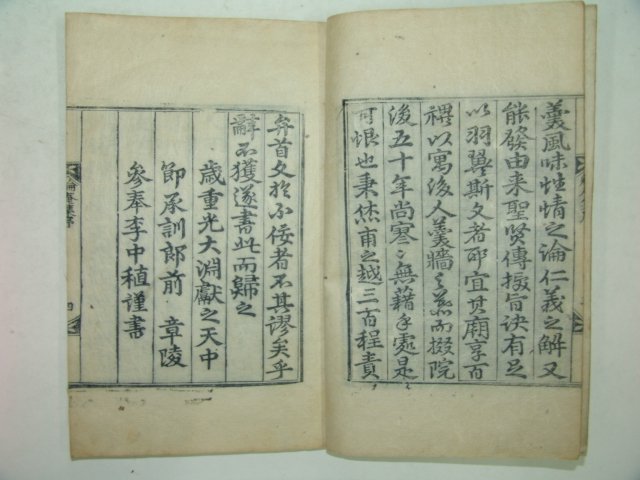 羹風味性情之論仁義之解又
能發由来聖賢傳授旨诀有足
以羽翼斯文者卲宜其廟享百
禩以寓後人羹牆之慕而掇院
後五十年尚寒〻無藉手處是
可恨也秉烋甫之越三百程責
弁首文於不佞者不其謬矣乎
辭不獲遂書此而歸之
歲重光大淵獻之天中
節承訓郎前 章陵
參奉李中稙謹書
四